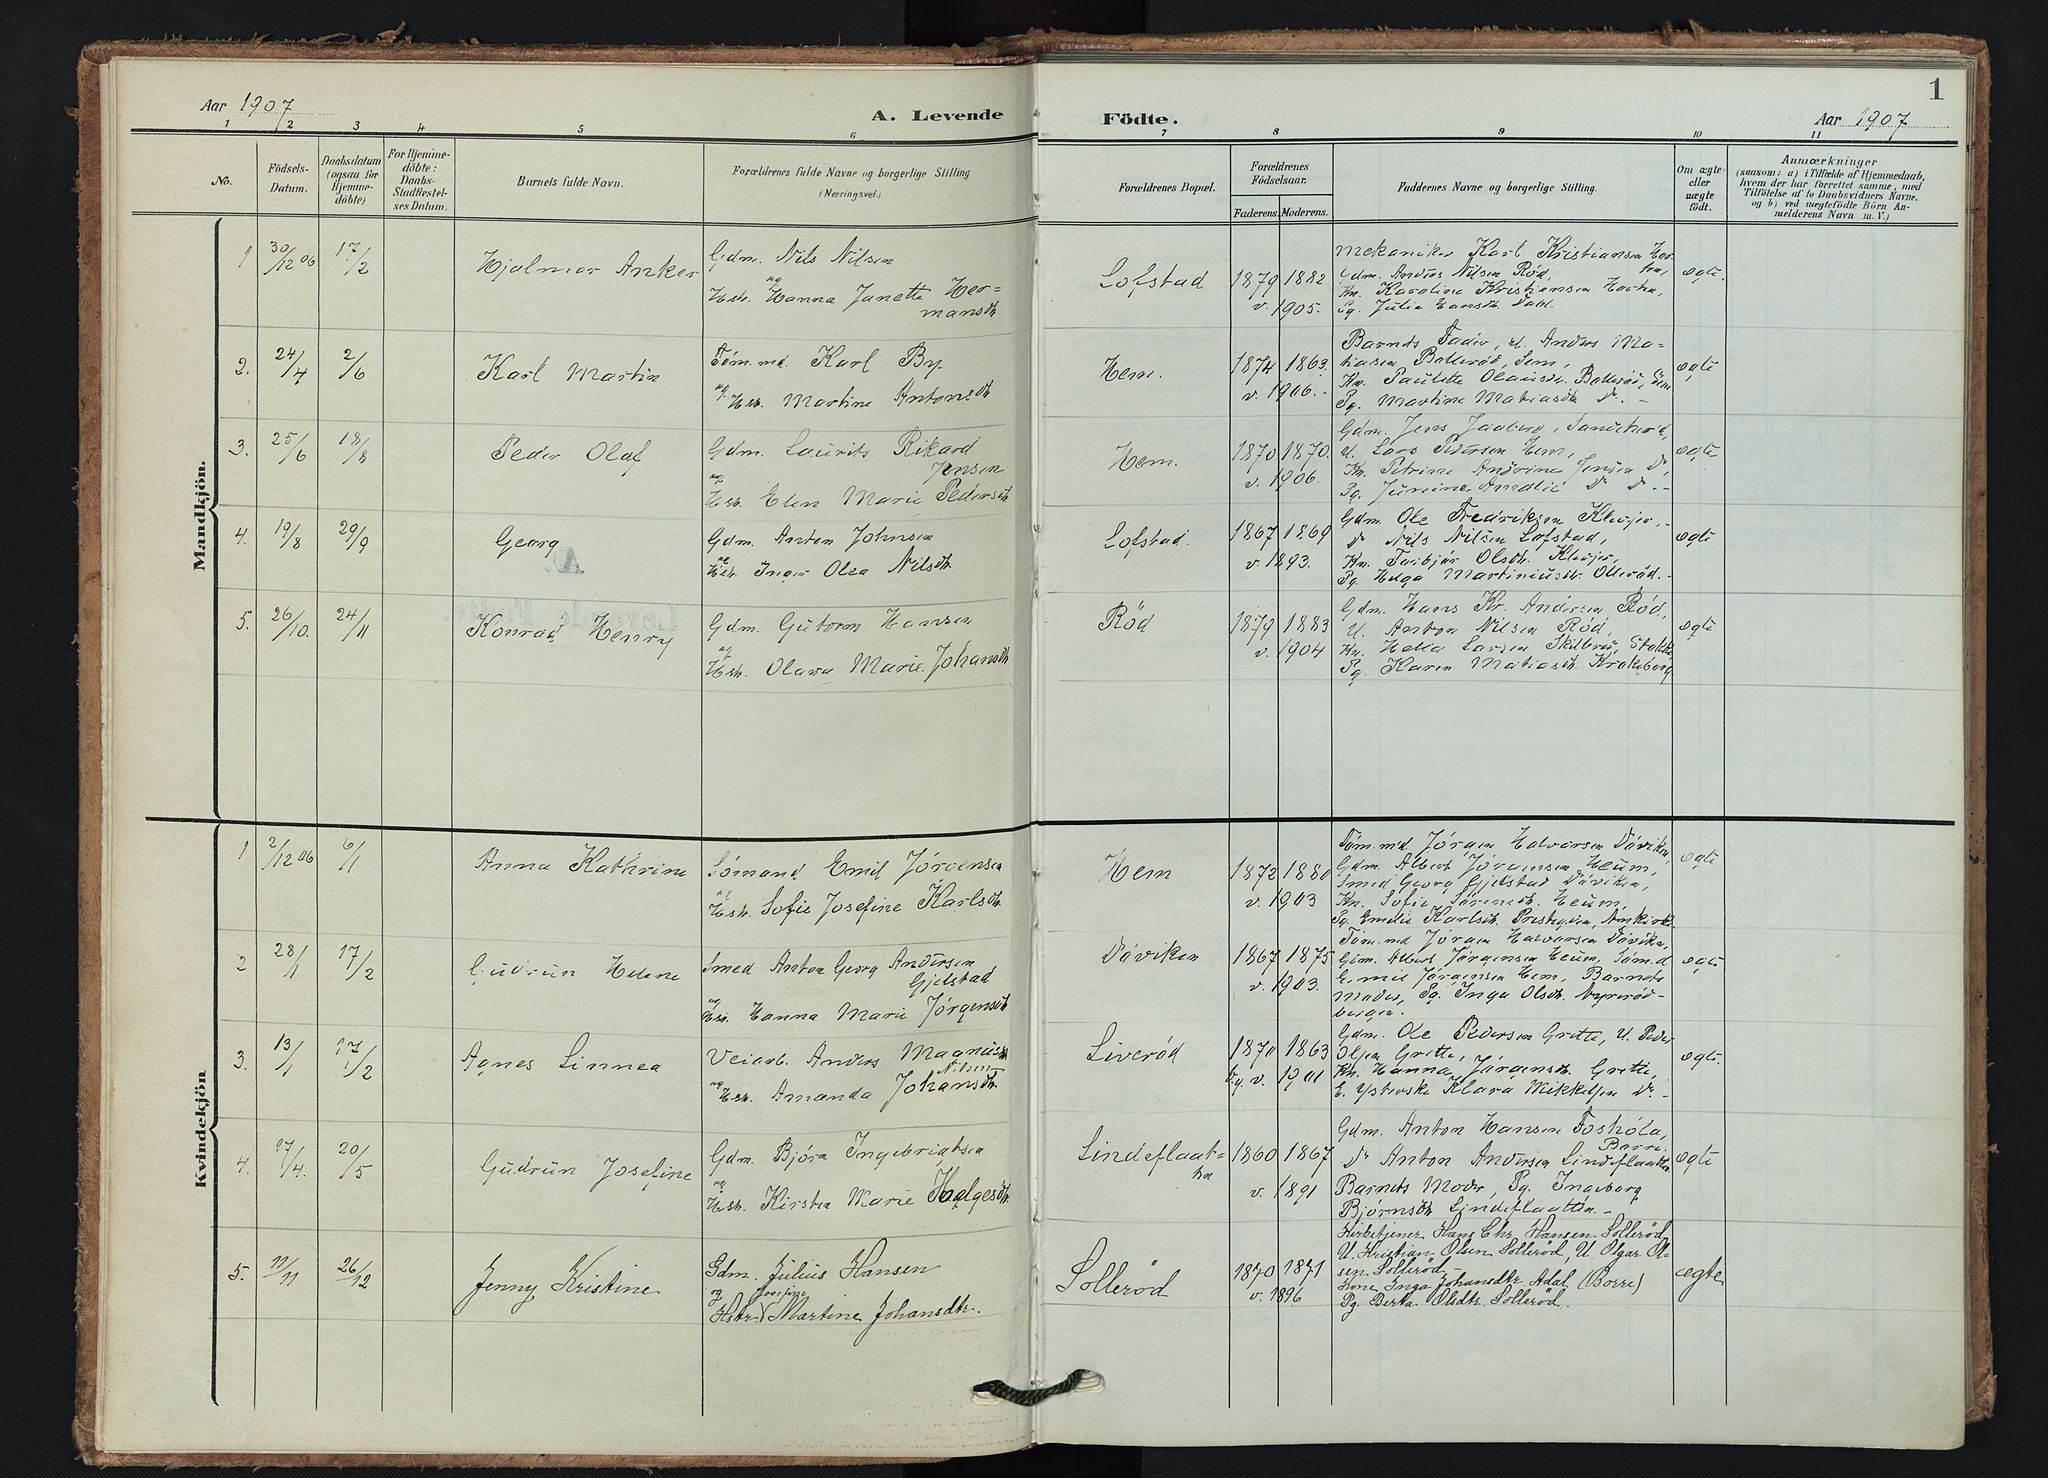 1
Aar 1907
A. Levende
Födte.
Aar 1907
1 2 3 4 5 6 7 8 9 10 11
No.
Födsels-
Datum.
Daabsdatum
(ogsaa for
Hjemme-
döbte)
For Hjemme-
döbte:
Daabs-
Stadfestel-
ses Datum.
Barnets fulde Navn.
Forældrenes fulde Navne og borgerlige Stilling
(Næringsvei.)
Forældrenes Bopæl.
Forældrenes
Födselsaar.
Faderens. Moderens.
Faddernes Navne og borgerlige Stilling.
Om ægte
eller
uægte
födt.
Anmærkninger
(saasom: a) i Tilfælde af Hjemmedaab,
hvem der har forrettet samme, med
Tilföielse af to Daabsvidners Navne.
og b) ved uægtefödte Börn An-
melderens Navn m. V.)
Mandkjön.
1 30/12 06 17/2 Hjalmar Anker
Gdm. Nils Nilsen
og
Hstr. Hanna Janette Her-
mansdtr
Lofstad 1879 1882
v. 1905.
Mekaniker Karl Kristiansen Hor-
ten,
Gdm. Anders Nilsen Röd,
Kn. Karoline Kristiansen Horten,
Pg. Julie Hansdtr. Dahl.
ægte.
2. 24/4 2/6 Karl Martin
Töm.md. Karl By
og Hstr. Martine Antonsdtr
Hem. 1874 1863.
v. 1906.-
Barnets Fader, U. Anders Ma-
tiasen Batteröd, Sem,
Kn. Paulette Olausdtr. Batteröd, Sem
Pg. Martine Matiasdtr Do. -
ægte
3. 25/6 18/8 Peder Olaf
Gdm. Laurits Rikard
Jensen
og
Hstr. Elen Marie Pedersdtr
Hem. 1870 1870.
v. 1906.
Gdm. Jens
U. Lars Pedersen Hem,
Kn. Petrine Andrine Jensen Do,
Pg. Do Do. -
ægte
4. 19/8 29/9 Georg
Gdm. Anton Johnsen
og
Hstr. Inger Olea Nilsdtr.
Lofstad. 1867 1869
v. 1893.
Gdm. Ole Fredriksen Klevjer,-
Do Nils Nilsen Lofstad,
Kn. Torbjør Olsdtr. Klevjer,
Pg. Helga Martiniusdtr. Olleröd.-
ægte
5. 26/10. 24/11 Konrad Henry
Gdm. Gutorm Hansen
og
Hstr. Olava Marie Johansdtr
Röd 1879 1883
v. 1904
Gdm. Hans Kr. Andersen Röd,
U. Anton Nilsen Röd,
Kn. Helle Larsen Skilbred, Stokke
Pg. Karen Matiasdtr. Krakeborg
ægte
Kvindekjön
1 2/12 06 6/1 Anna Kathrine
Sömand Emil Jörgensen
og
Hstr. Sofie Josefine Karlsdtr
Hem 1872 1880
v. 1903
Töm.md Jörgen Halvorsen Döviken,
Gdm. Albert Jörgensen Heum,
Smed Georg Gjelstad Döviken,
Kn. Sofie Sörensdtr. Heum,
Pg. Emelie Karlsdtr.
ægte
2 28/1 17/2 Gudrun Helene
Smed Anton Georg Andersen
Gjelstad
og
Hstr. Hanna Marie Jörgensdtr
Döviken 1867 1875
v. 1903.
Töm.md Jörgen Halvorsen Döviken,
Gdm. Albert Jörgensen Heum, Sömd
Emil Jörgensen Hem, Barnets
Moder, Pg. Inga Olsdtr. Nyreröd-
bergen.
ægte
3. 13/1 17/2 Agnes Linnea
Veiarb. Anders Magnus
Nilsen
og
Hstr. Amanda Johansdtr
Liveröd 1870 1863
v. 1901
Gdm. Ole Pedersen Gretta, U. Peder
Olsen Gretta,
Kn. Hanna Jörgensdtr. Gretta,
E. Klara Mikkelsen Do. -
ægte.
4. 17/4. 20/5 Gudrun Josefine
Gdm. Björn Ingebrigtsen
og
Hstr. Kirsten Marie Helgesdtr
Lindeflaat-
ten
1860 1867
v. 1891
Gdm. Anton Hansen Foshola,
Borre,
Do Anton Andersen Lindeflaatten
Barnets Moder, Pg. Ingeborg
Björnsdtr. Lindeflaatten.-
ægte
5. 11/11 26/12 Jenny Kristine
Gdm. Julius Hansen
og Josefine
Hstr. Martine Johansdtr.
Solleröd 1870 1871
v. 1896
Kirketjener Hans Chr. Hansen Solleröd,
U. Kristian Olsen Solleröd, U. Olgar Ol-
sen Solleröd,-
Kone Inga Johansdtr Adal (Borre)
Pg. Berta Olsdtr Solleröd.
ægte